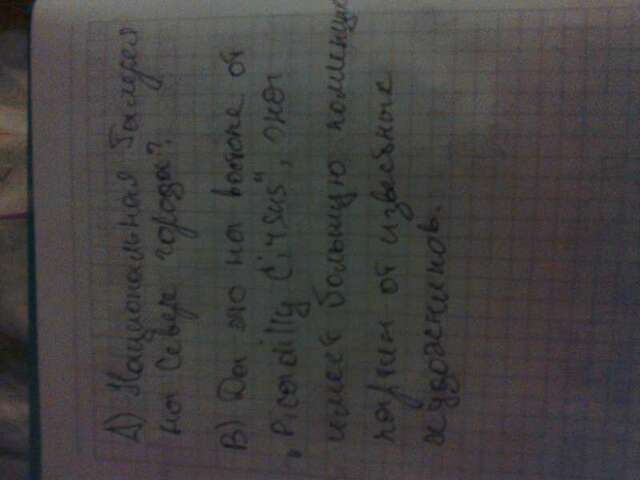 А) Национальная Галерея
на Севере города?
В) Да это на востоке от
„Picadilly Cirsus", она
имеет большую коллекцию
картин от известных
художников.